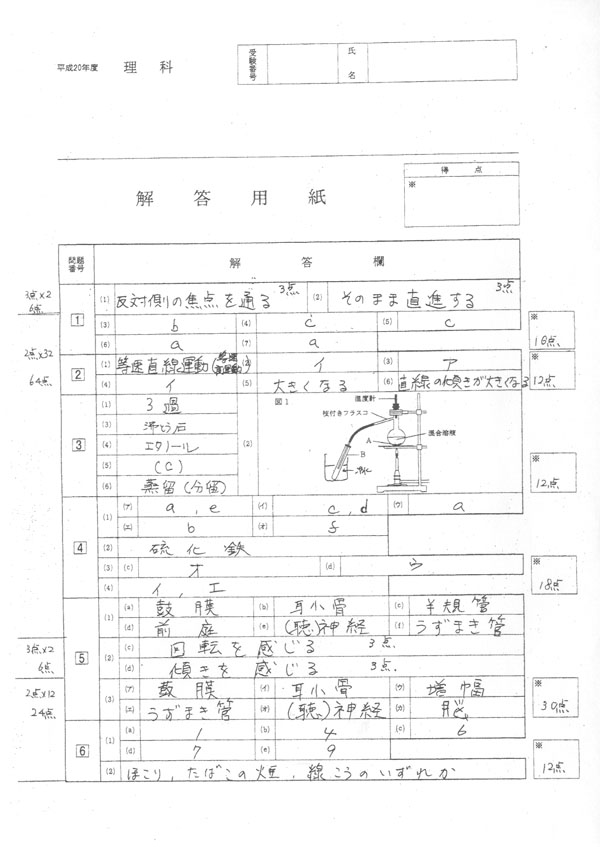 平成20年度 理科
受験番号 氏名
得点
※
解答用紙
問題番号 解答欄
3点×2
6点
1 (1) 反対側の焦点を通る 3点 (2) そのまま直進する 3点
(3) b (4) c (5) c
(6) a (7) a
※ 16点
2点×32
64点
2 (1) 等速直線運動 (2) イ (3) ア
(4) イ (5) 大きくなる (6) 直線の傾きが大きくなる
※ 12点
3 (1) ろ過
(3) 沸とう石
(4) エタノール
(5) (C)
(6) 蒸留(分留)
(2) 図1
温度計
枝付きフラスコ
混合溶液
A
B
※ 12点
4 (1) (ア) a, e (イ) c, d (ウ) a
(エ) b (オ) f
(2) 硫化鉄
(3) (c) オ (d) ウ
(4) イ, エ
※ 18点
5 (1) (a) 鼓膜 (b) 耳小骨 (c) 半規管
(d) 前庭 (e) (聴)神経 (f) うずまき管
3点×2
6点
(2) (c) 回転を感じる 3点.
(d) 傾きを感じる 3点.
2点×12
24点
(3) (ア) 鼓膜 (イ) 耳小骨 (ウ) 増幅
(エ) うずまき管 (オ) (聴)神経 (カ) 脳
※ 30点
6 (1) (a) 1 (b) 4 (c) 6
(d) 7 (e) 9
(2) ほこり, たばこの煙, 線こうのいずれか
※ 12点